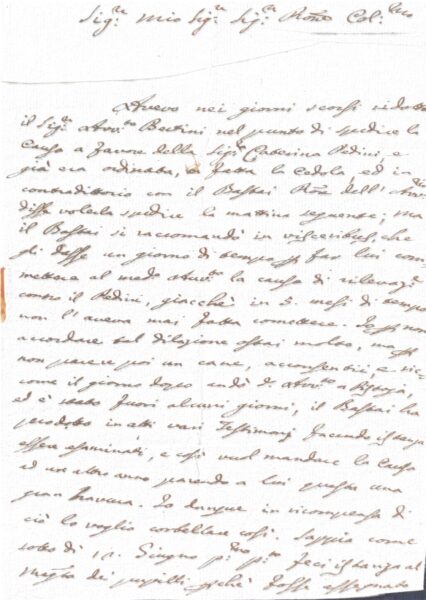 Sig.re mio Sig.re Sig.re Rone Col.mo
Avevo nei giorni scorsi ridotto
il Sig.re Avv.to Bertini nel punto di spedire la
Causa a favore della Sig.ra Caterina Pedini, e
già era ordinata, e fatta la Cedola, ed in
contradittorio con il Bassai Rone dell'
disse volerla spedire la mattina seguente; ma
il Bassai si raccomandò in visceribus, che
si dasse un giorno di tempo p far lui com
mettere al med.o Avv.to la causa di rilevaz.e
contro il Pedini, giacchè in 5. mesi di tempo
non l'aveva mai fatta comettere. non
accordare tal dilazione assai molto, ma p
non parere poi un cane, acconsentii, e sic
come il giorno dopo andò d.o Avv.to a
ed è stato fuori alcuni giorni, il Bassai ha
prodotto in atti vari Testimonj facendo istanza
essere esaminati, e così vuol mandare la Causa
ad un altro anno parendo a lui questa una
gran bravura. Io dunque in ricompensa di
ciò lo voglio corbellare così. Sappia come
sotto di Giugno p.mo p.to feci istanza al
Mag.to dei pupilli, pchè fosse assegnato